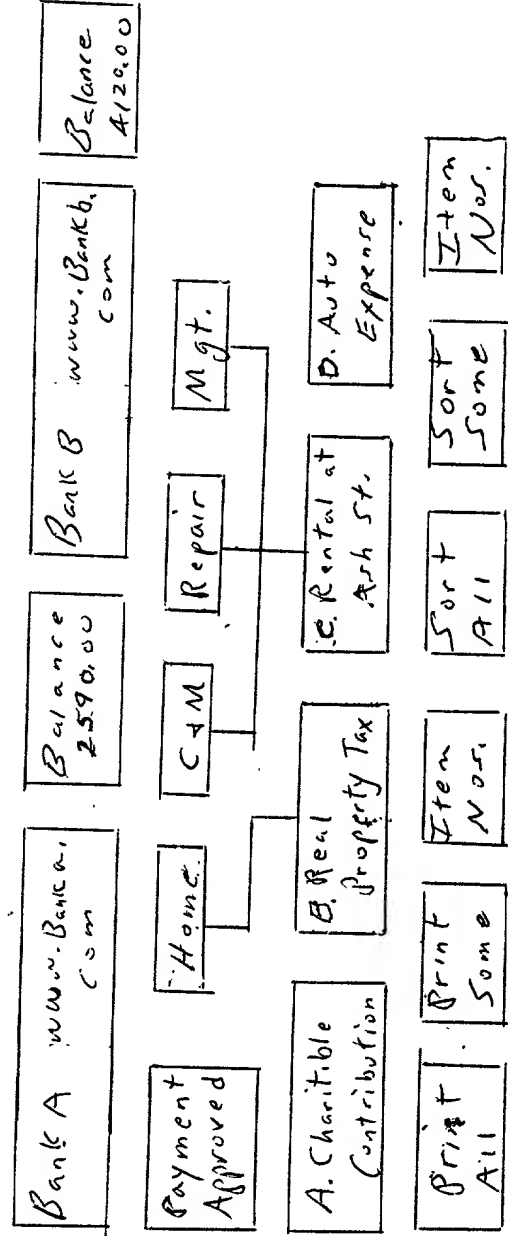 Bank A www.Banka.
com
Balance
2590.00
Bank B www.Bankb.
com
Balance
4120.00
Payment
Approved
Home
C&M
Repair
Mgt.
A. Charitible
Contribution
B. Real
Property Tax
C. Rental at
Ash St.
D. Auto
Expense
Print
All
Print
Some
Item
Nos.
Sort
All
Sort
Some
Item
Nos.